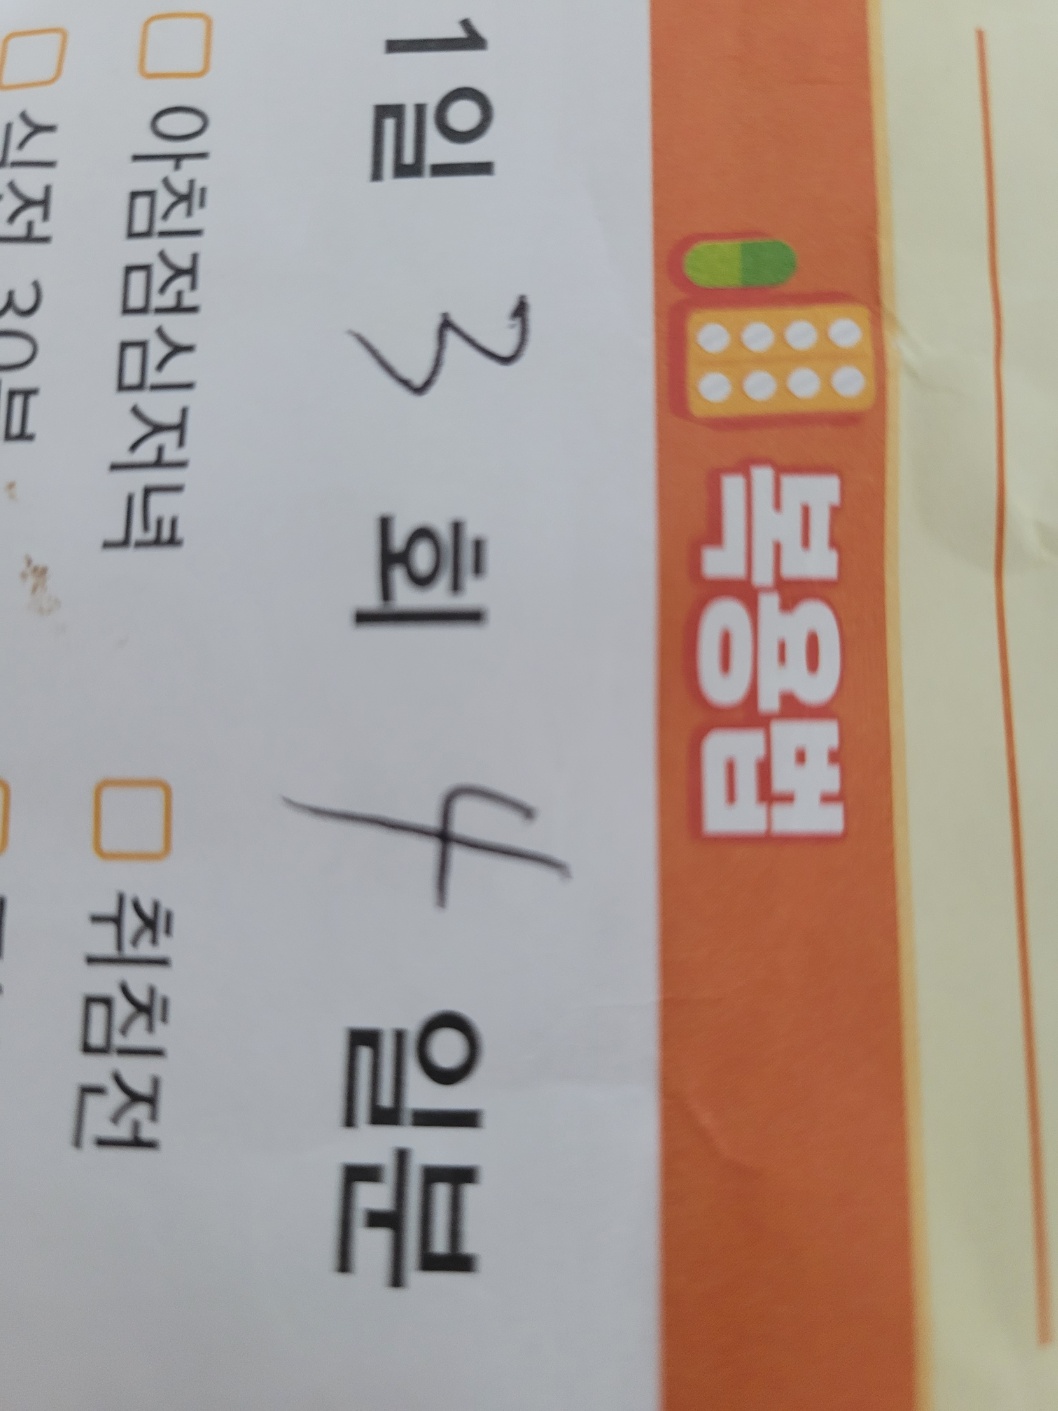 복용법
1일 3 회 4 일분
아침점심저녁 취침전
식전 30분